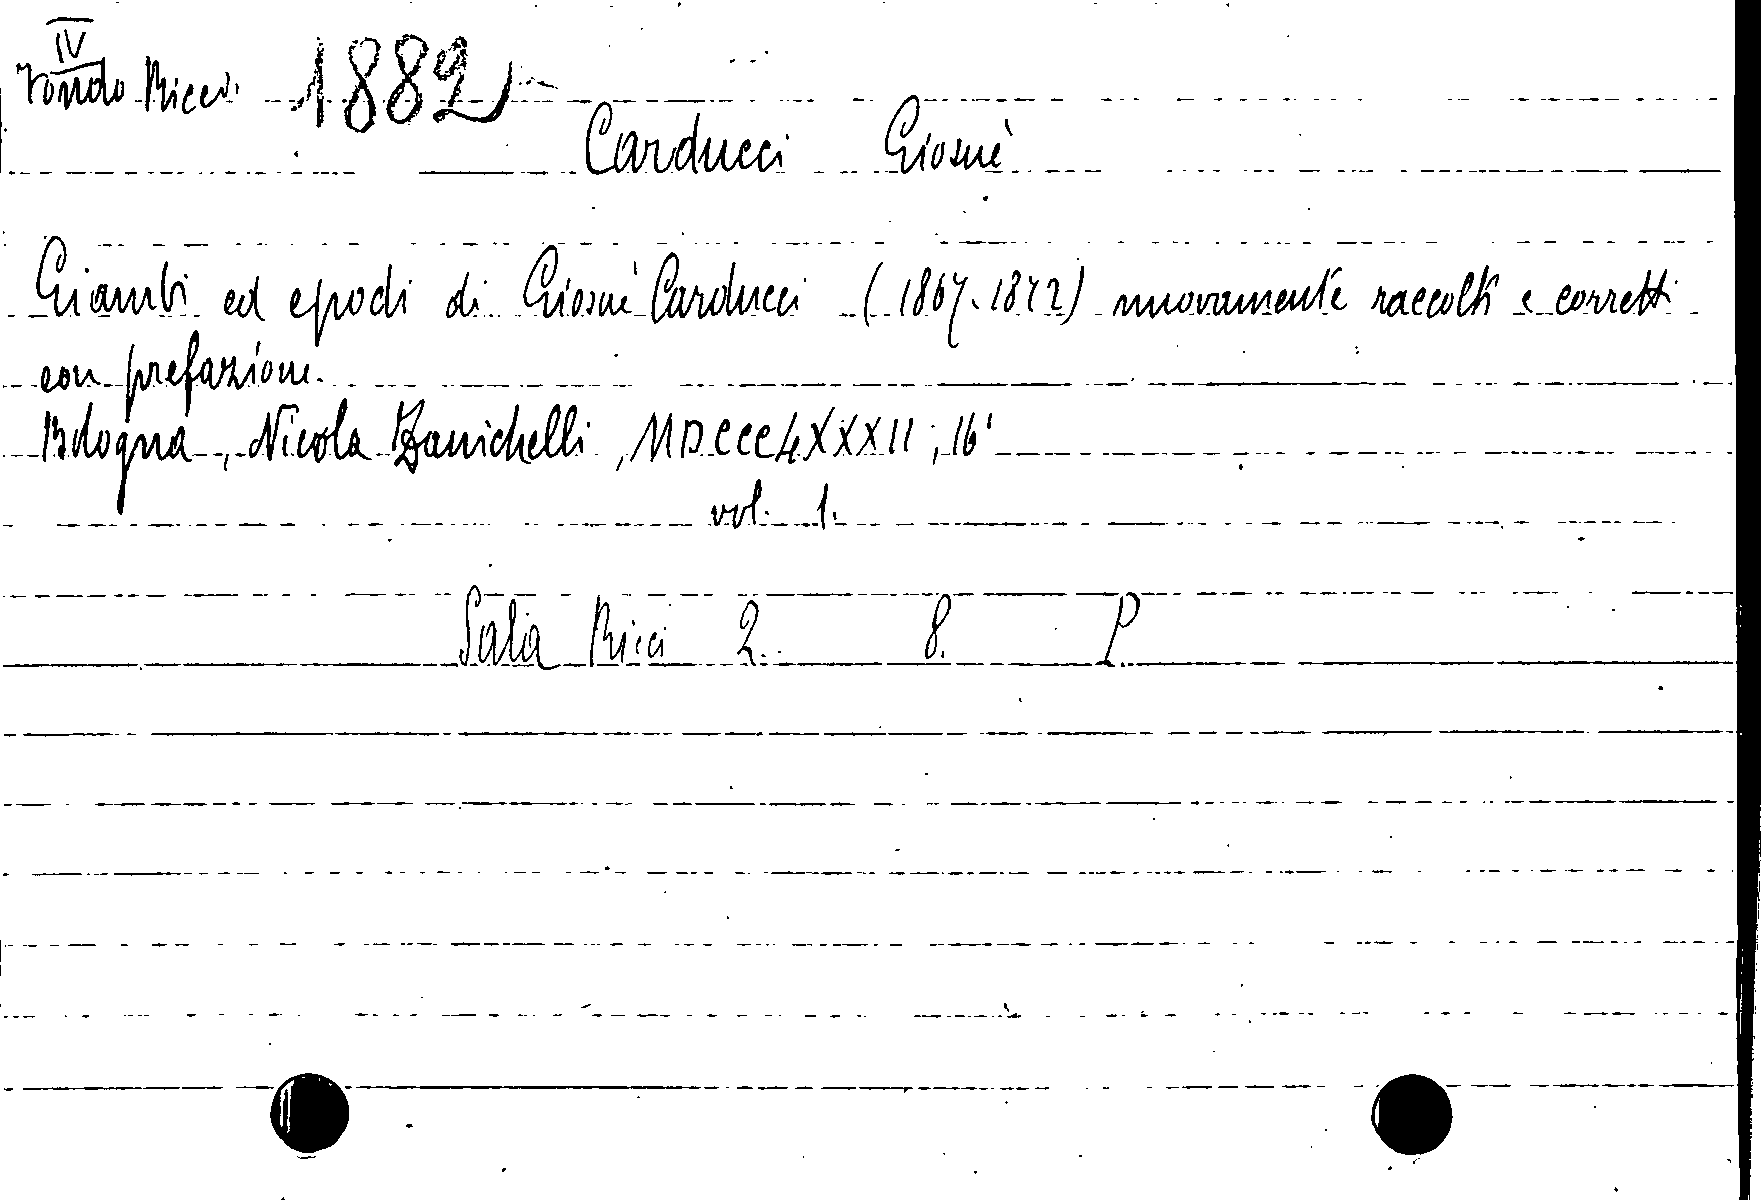 IV
Fondo Ricci 1882
Carducci Giosuè
Giambi ed epodi di Giosuè Carducci (1867-1872) nuovamente raccolti e corretti
con prefazione.
Bologna, Nicola Zanichelli, MDCCCLXXXII; 16°
vol. 1.
Sala Ricci 2. 8. P.